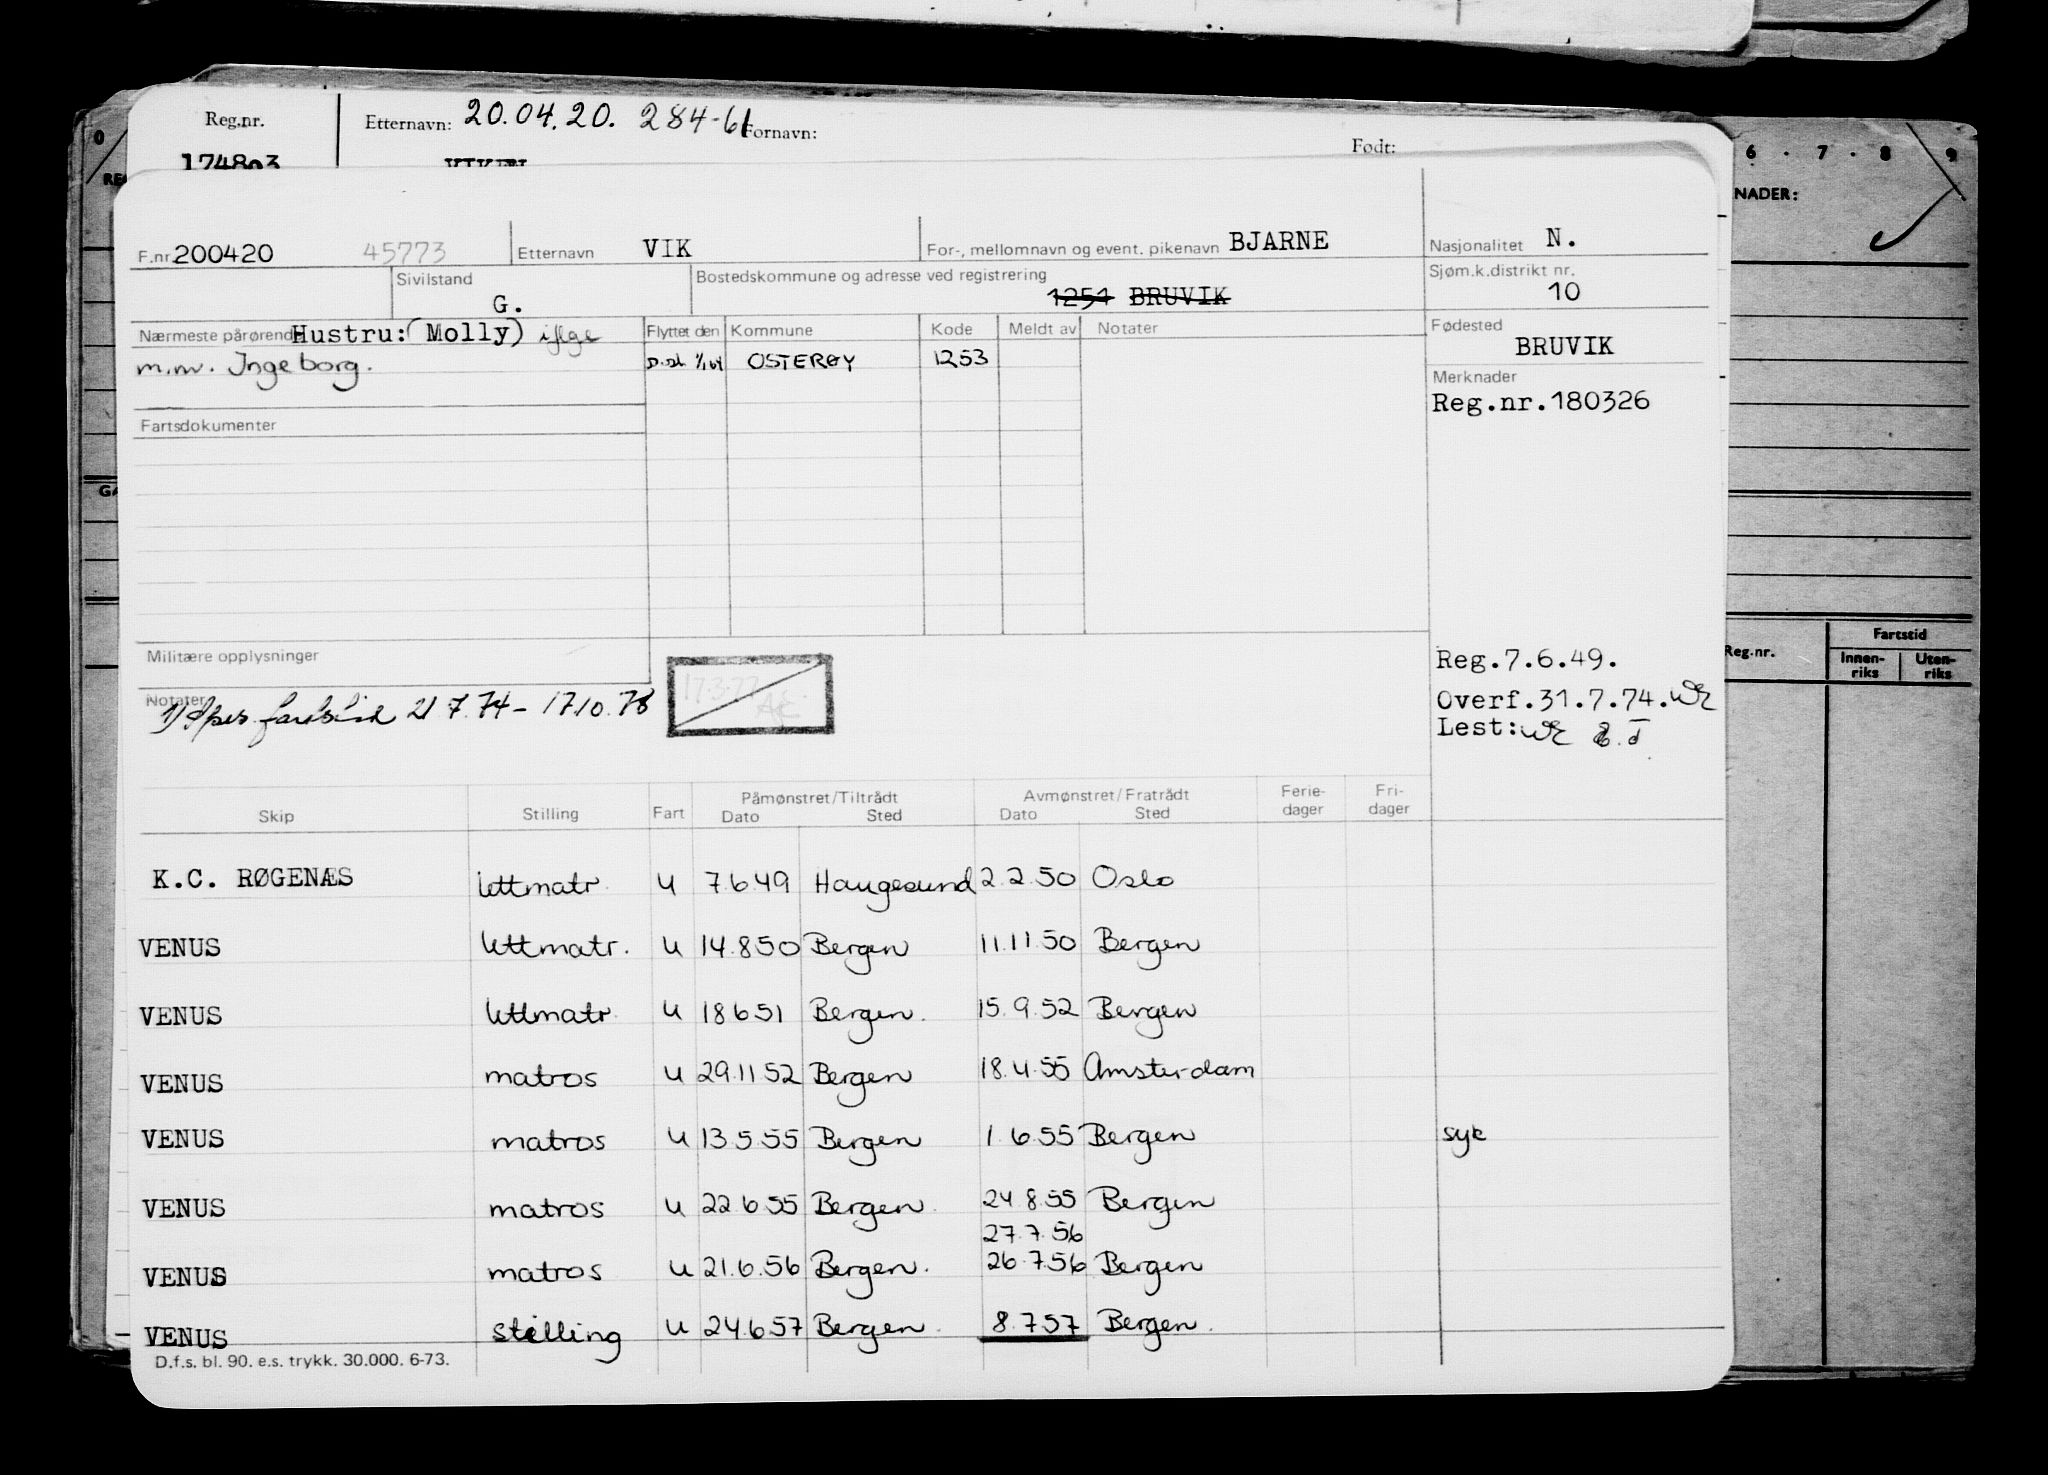 Reg.nr. Etternavn: 20.04.20. 284-61 Fornavn: Født:
174803
0 6 . 7 . 8 9
NADER:
F.nr. 200420 45773 Etternavn VIK For-, mellomnavn og event. pikenavn BJARNE Nasjonalitet N.
Sivilstand G. Bostedskommune og adresse ved registrering 1251 BRUVIK Sjøm.k.distrikt nr. 10
Nærmeste pårørende Hustru: (Molly) iflge Flyttet den Kommune Kode Meldt av Notater Fødested BRUVIK
m.nv. Ingeborg. OSTERØY 1253
Merknader
Reg.nr.180326
Fartsdokumenter
Militære opplysninger
Reg.7.6.49.
Notater 21 7.74 - 17.10.78
17.3.77
Overf.31.7.74.
Lest:
Reg.nr. Fartstid
Innen-riks Uten-riks
Skip Stilling Fart Påmønstret/Tiltrådt Dato Sted Avmønstret/Fratrådt Dato Sted Ferie-dager Fri-dager
K.C. RØGENÆS lettmatr. U 7.6.49 Haugesund 2.2.50 Oslo
VENUS lettmatr. U 14.8.50 Bergen 11.11.50 Bergen
VENUS lettmatr. U 18.6.51 Bergen. 15.9.52 Bergen
VENUS matros U 29.11.52 Bergen 18.4.55 Amsterdam
VENUS matros U 13.5.55 Bergen 1.6.55 Bergen syk
VENUS matros U 22.6.55 Bergen. 24.8.55 Bergen
27.7.56
VENUS matros U 21.6.56 Bergen. 26.7.56 Bergen
VENUS stilling U 24.6.57 Bergen. 8.7.57 Bergen.
D.f.s. bl. 90. e.s. trykk. 30.000. 6-73.